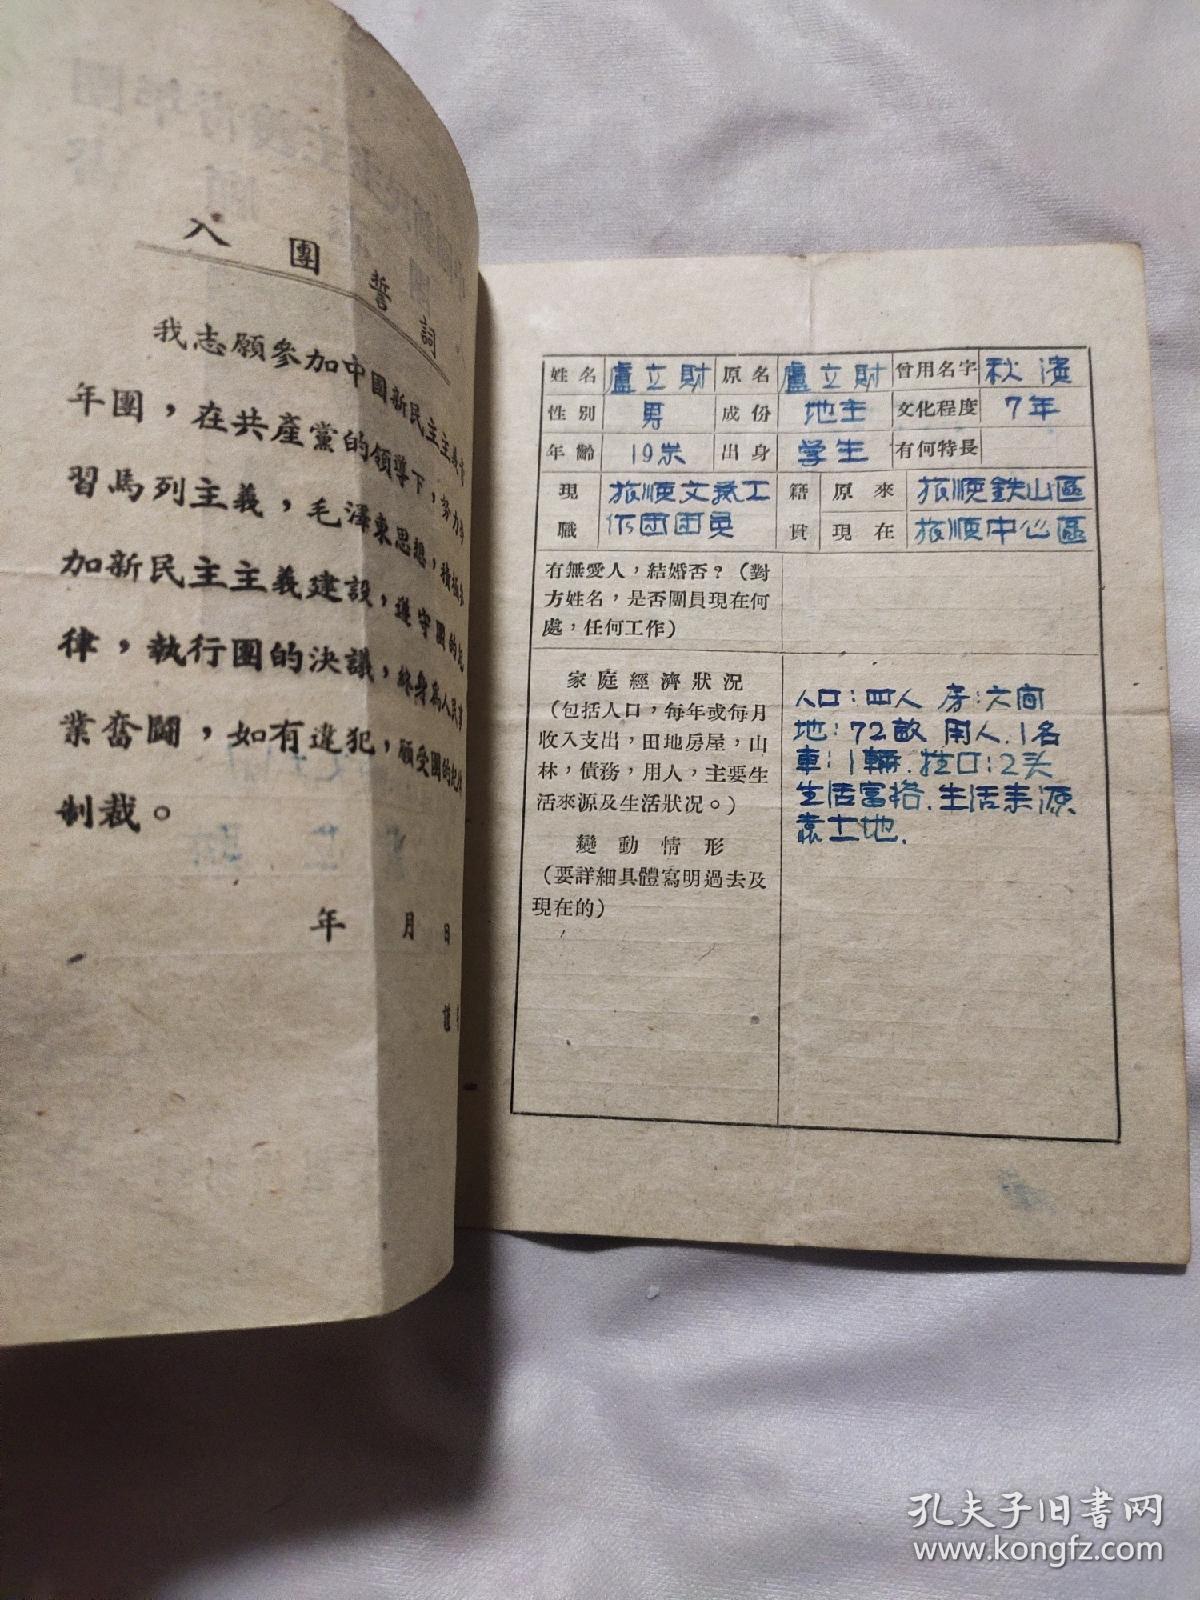 入團誓詞
我志願參加中國新民主主義青
年團，在共產黨的領導下，努力學
習馬列主義，毛澤東思想，積極參
加新民主主義建設，遵守團的紀
律，執行團的決議，終身為人民事
業奮鬪，如有違犯，願受團的紀律
制裁。
年 月 日
謹
姓名 盧立財 原名 盧立財 曾用名字 秋濱
性別 男 成份 地主 文化程度 7年
年齡 19岁 出身 学生 有何特長
現職 旅順文 工作团团員 籍貫 原來 旅順鉄山區
現在 旅順中心區
有無愛人，結婚否？（對
方姓名，是否團員現在何
處，任何工作）
家庭經濟狀況
（包括人口，每年或每月
收入支出，田地房屋，山
林，債務，用人，主要生
活來源及生活狀况。）
變動情形
（要詳細具體寫明過去及
現在的）
人口：四人 房：六间
地：72畝 用人.1名
車：1輛.牲口：2头
生活富裕.生活来源
靠土地.
孔夫子旧书网
www.kongfz.com